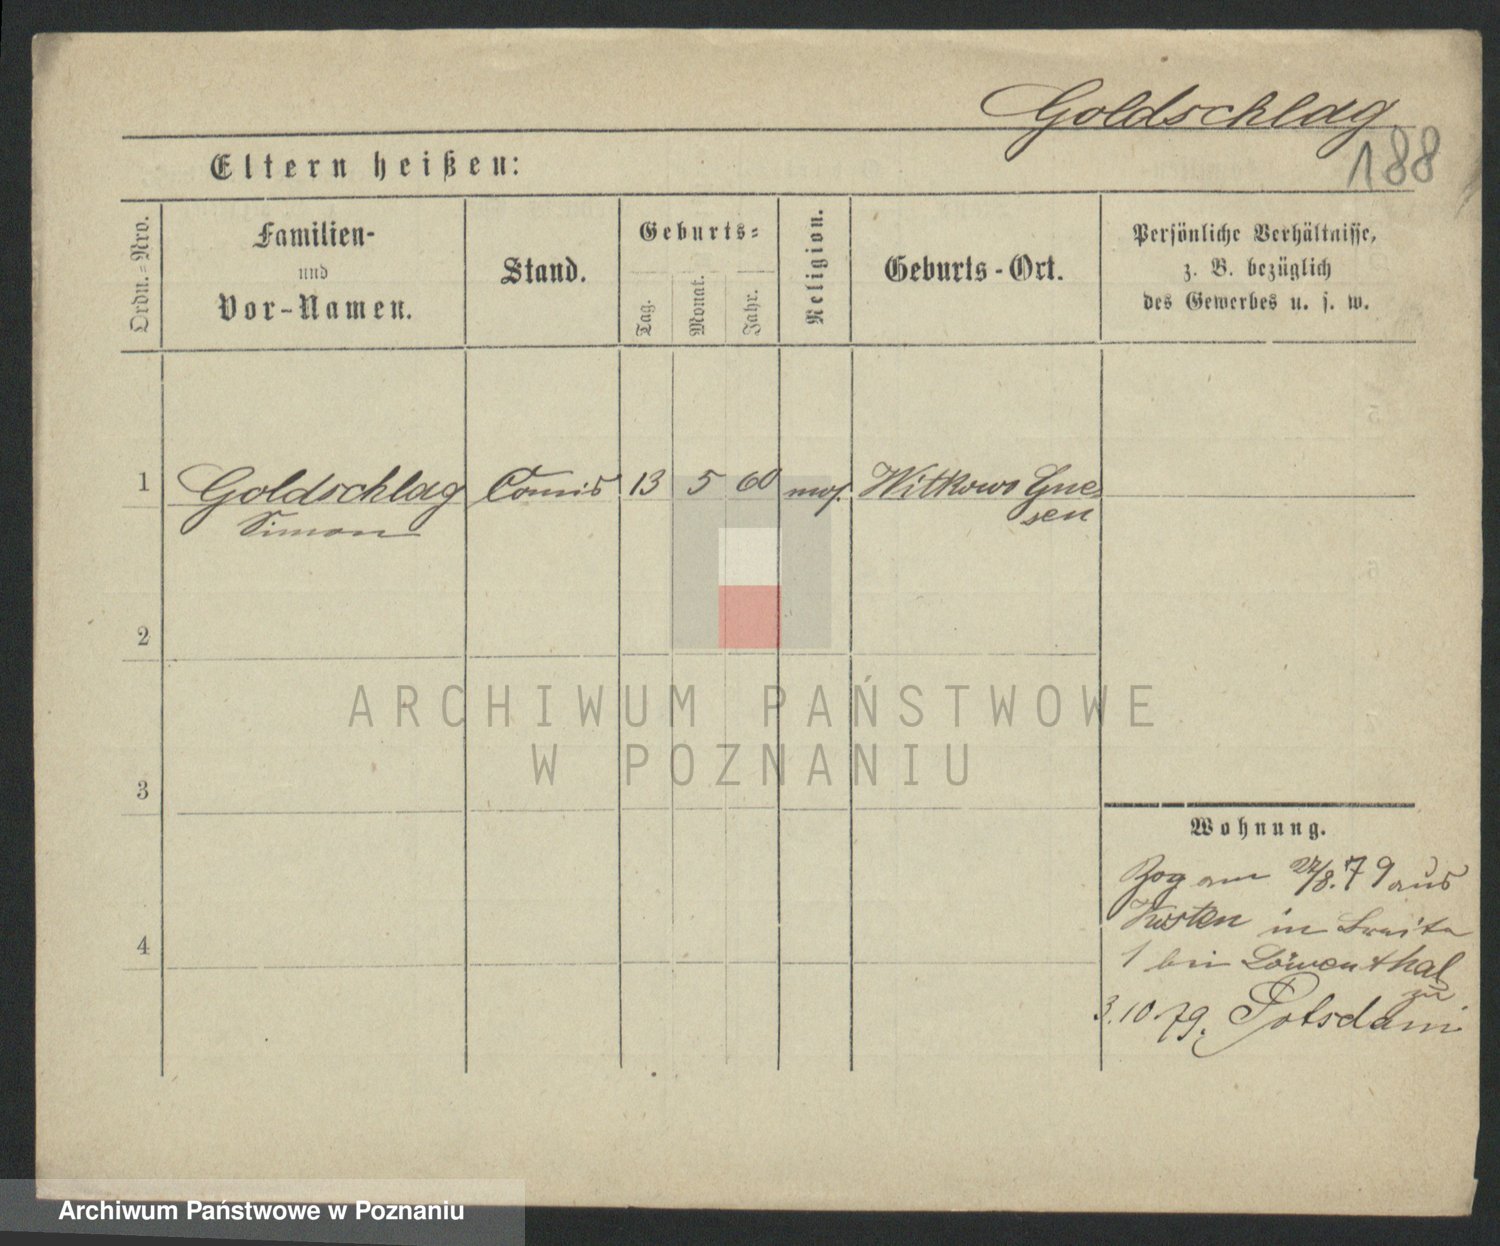 Goldschlag
188
Eltern heißen:
Ordn.=Nro.
Familien-
und
Vor-Namen.
Stand.
Geburts=
Tag.
Monat.
Jahr.
Religion.
Geburts-Ort.
Persönliche Verhältnisse,
z. B. bezüglich
des Gewerbes u. s. w.
1 Goldschlag Comis 13 5 60 mos. Witkowo Gne
Simon sen
2
3
4
Wohnung.
Zog am 27/8. 79 aus
Kosten in Breite
1 bei Löwenthal
zu
3.10.79. Potsdam
ARCHIWUM PAŃSTWOWE
W POZNANIU
Archiwum Państwowe w Poznaniu